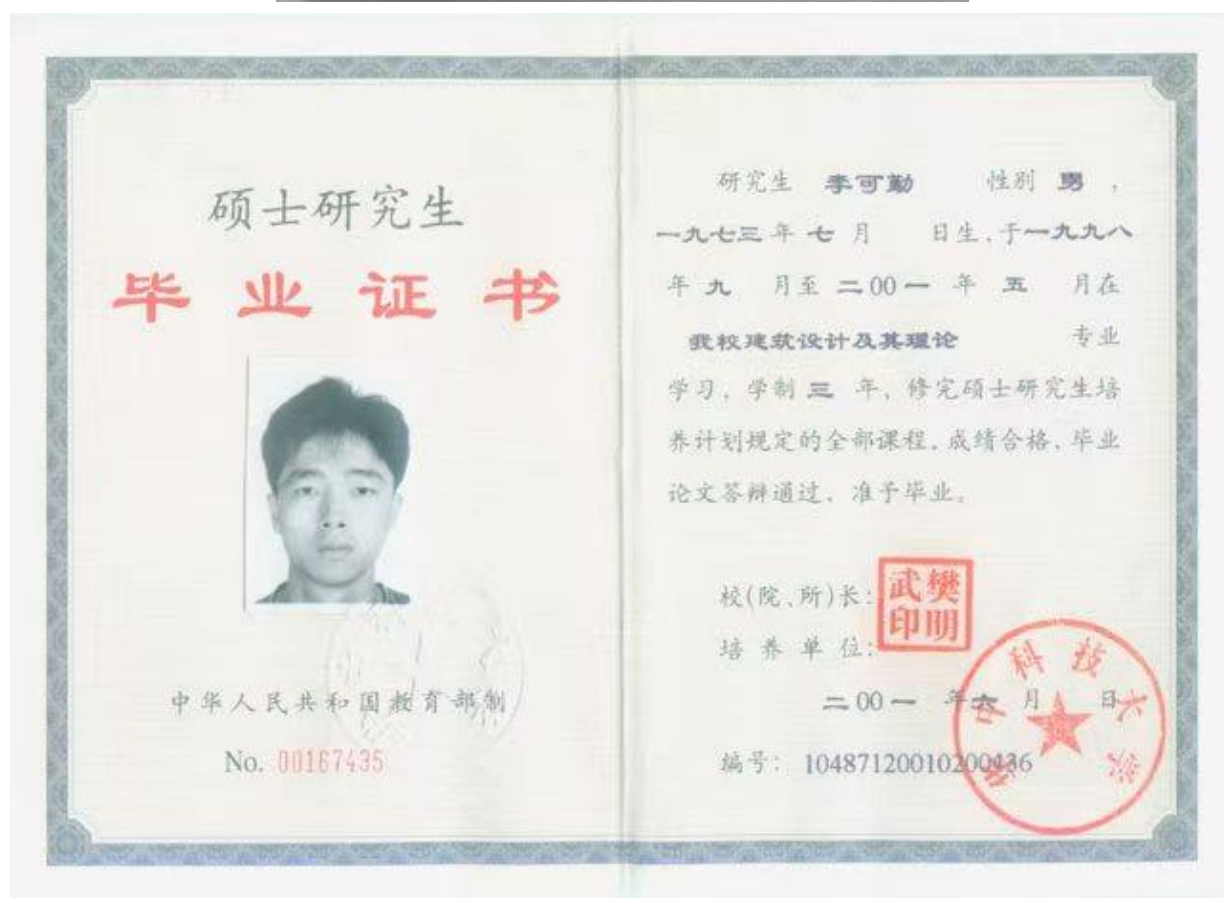 硕士研究生
毕业证书
中华人民共和国教育部制
No. 00167435
研究生 李可勤 性别 男，
一九七三年 七 月 日生，于一九九八
年 九 月至 二00一 年 五 月在
我校建筑设计及其理论 专业
学习，学制 三 年，修完硕士研究生培
养计划规定的全部课程，成绩合格，毕业
论文答辩通过，准予毕业。
校(院、所)长：
樊明武印
培养单位：
华中科技大学
二00一 年六 月 日
编号：10487120010200436